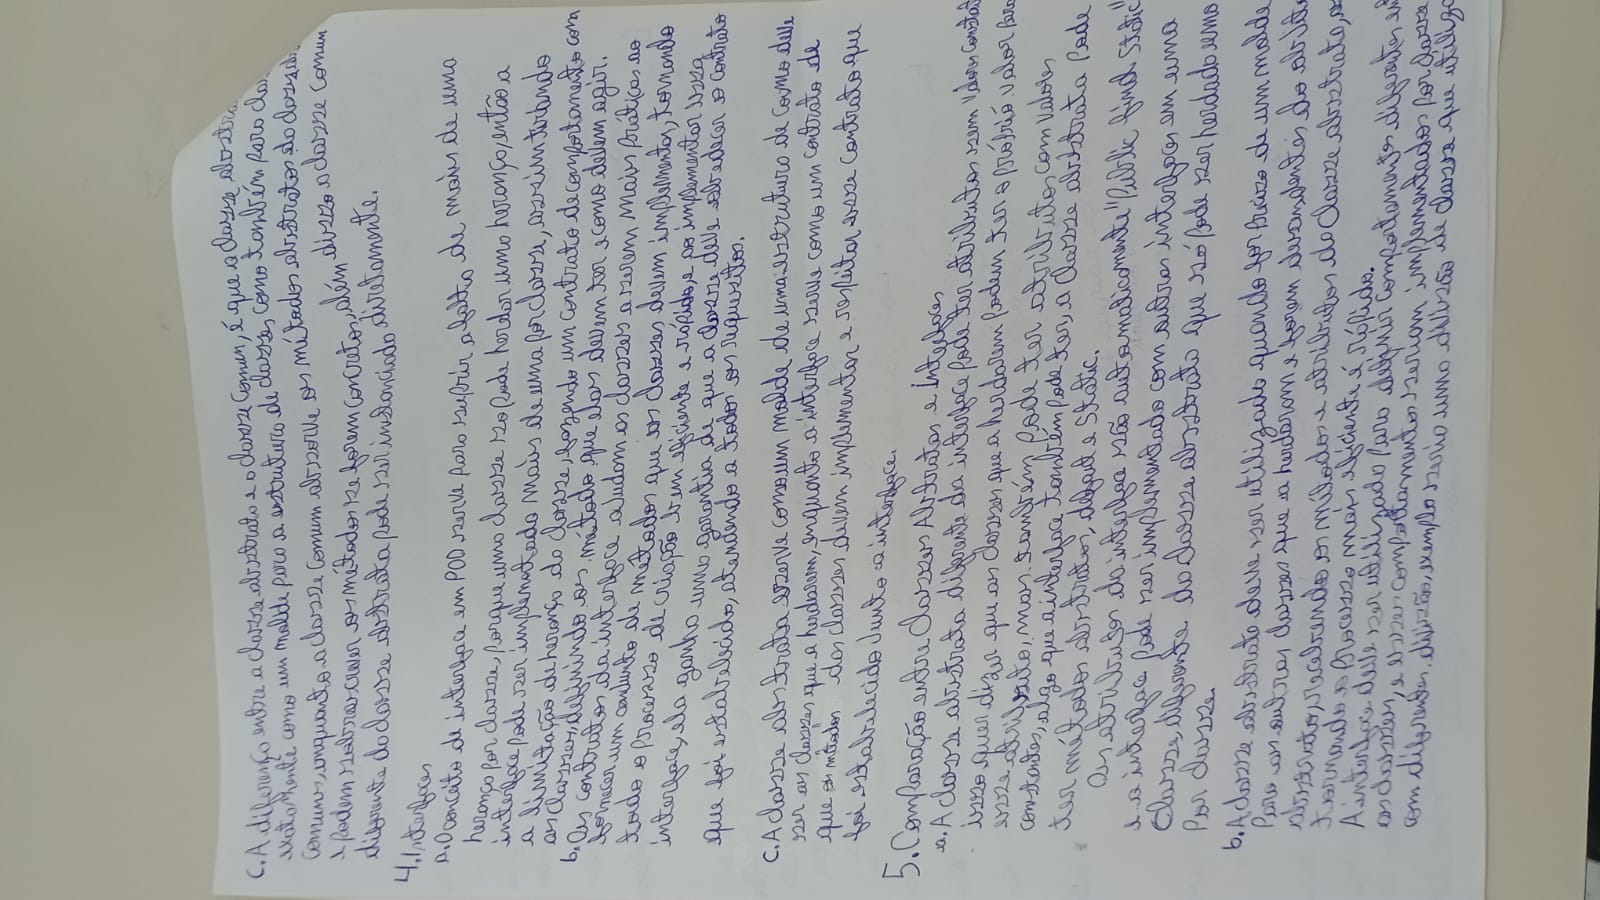 c. A diferença entre a classe abstrata e a classe comum, é que a classe abstrata
exatamente como um molde para a estrutura de classes, como também para classes
comuns, enquanto a classe comum absorve os métodos abstratos da classe
e podem sobrescrever os métodos se forem concretos, além disso a classe comum
diferente da classe abstrata pode ser instanciada diretamente.
4. Interfaces
a. O conceito de interface em POO serve para suprir a falta de mais de uma
herança por classe, porque uma classe só pode herdar uma herança, então a
interface pode ser implementada mais de uma por classe, assim tirando
a limitação de herança da classe, fazendo um contrato de comportamento com
as classes, definindo os métodos que elas devem ter e como devem agir.
b. Os contratos da interface ajudam as classes a serem mais práticas ao
fornecer um conjunto de métodos que as classes devem implementar, tornando
todo o processo de criação bem eficiente e rápido, e ao implementar essa
interface, ela ganha uma garantia de que a classe deve obedecer o contrato
que foi estabelecido, atendendo a todos os requisitos.
c. A classe abstrata serve como um molde de uma estrutura de como deve
ser as classes que a herdarem, enquanto a interface serve como um contrato de
que os métodos das classes devem implementar e respeitar esse contrato que
foi estabelecido junto a interface.
5. Comparação entre Classes Abstratas e interfaces
a. A classe abstrata diferente da interface pode ter atributos sem valor constante
isso quer dizer que as classes que a herdarem podem ter o próprio valor para
esse atributo, mas também pode ter atributos com valores
constantes, algo que a interface também pode ter, a classe abstrata pode
ter métodos abstratos, default e static.
Os atributos da interface são automaticamente "Public final static"
e a interface pode ser implementada com outras interfaces em uma
classe, diferente da classe abstrata que só pode ser herdada uma
por classe.
b. A classe abstrata deve ser utilizada quando for preciso de um molde
para as outras classes que a herdarem e forem descendentes do
abstrato, recebendo os métodos e atributos da classe abstrata,
tornando o processo mais eficiente e rápido.
A interface deve ser utilizada para definir comportamentos diferentes em
as classes, e esses comportamentos serem implementados por classes
com diferentes, exemplo seria uma de classe que utiliza